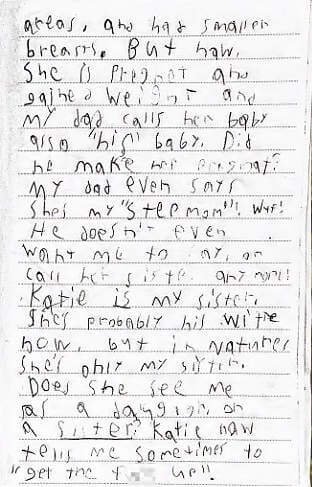 areas, and had smaller
breasts. But now,
She is pregnet and
gained weight and
My dad calls her baby
also "his" baby. Did
he make her pregnat?
My dad even says
She's my "stepmom"! WTF!
He doesn't even
want me to say, or
call her sister any more!
Katie is my sister.
She's probably his wife
now, but in Nature
She's only my sister.
Does She see me
as a daughter, or
a sister? Katie now
tells me sometimes to
"get the f up"!